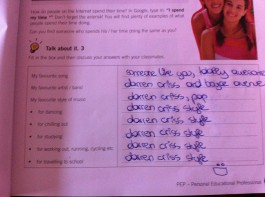 How do people on the internet spend their time? In Google, type in: "I spend
my time *" Don't forget the asterisk! You will find plenty of examples of what
people spend their time doing.
Can you find someone who spends his / her time doing the same as you?
Talk about it. 3
Fill in the box and then discuss your answers with your classmates.
My favourite song
someone like you,
My favourite artist / band
darren criss and
My favourite style of music
darren criss, pop
• for dancing
darren criss style
• for chilling out
darren criss style
• for studying
darren criss style
• for working out, running, cycling etc
darren criss style
• for travelling to school
darren criss style
PEP – Personal Educational Professional